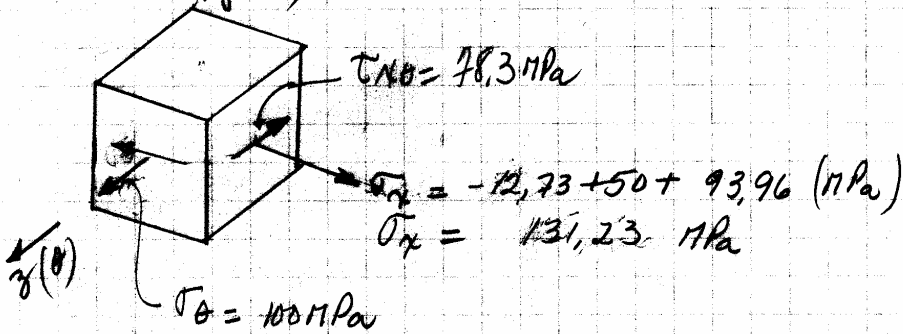 τxθ = 78,3 MPa
σx = -12,73 + 50 + 93,96 (MPa)
σx = 131,23 MPa
z(θ)
σθ = 100 MPa